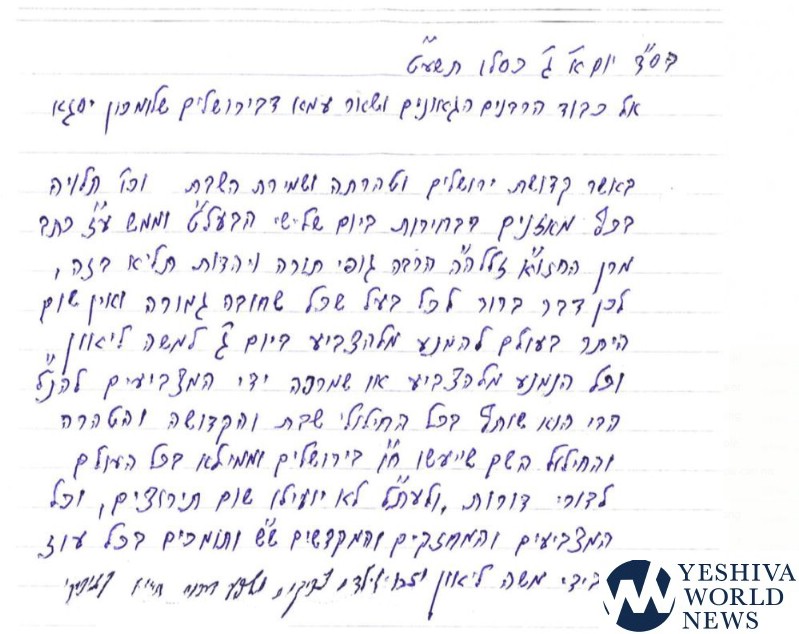 בס"ד יום א' ג' כסלו תשע"ט
אל כבוד הרבנים הגאונים ושאור עמא דבירושלים שלומכון יסגא
באשר קדושת ירושלים וטהרתה ושמירת השבת וכו' תלויה
בכף מאזנים דבחירות ביום שלישי הבעל"ט וממש ע"ז כתב
מרן החזו"א זללה"ה הרבה גופי תורה ויהדות תליא בזה,
לכן דבר ברור לכל בעל שכל שחובה גמורה ואין שום
היתר בעולם להמנע מלהצביע ביום ג' למשה ליאון
וכל הנמנע מלהצביע או שמרפה ידי המצביעים להנ"ל
הרי הוא שותף בכל החילולי שבת והקדושה והטהרה
והחילול השם שייעשו ח"ו בירושלים וממילא בכל העולם
לדורי דורות, ולעת"ל לא יועילו שום תירוצים, וכל
המצביעים והמחזקים והמקדשים ש"ש ותומכים בכל עוז
בידי משה ליאון יזכו
YESHIVA
WORLD
NEWS